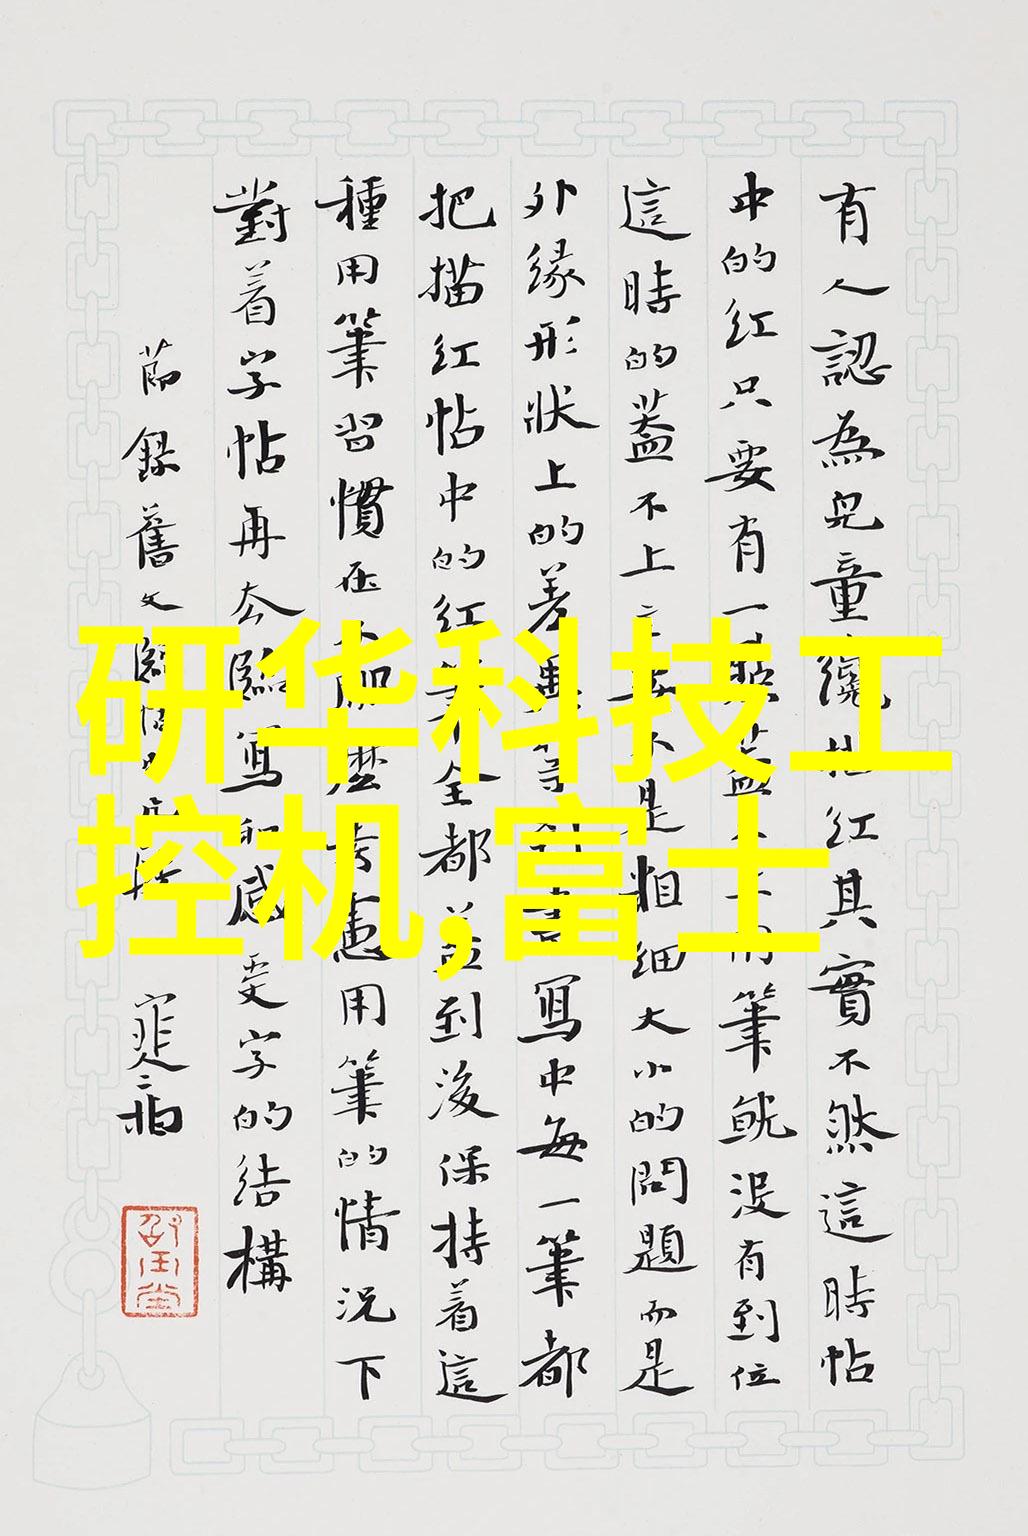 有人認為兒童描紅其實不然這時帖
中的紅只要有一點蓋不上用筆就没有到位
這時的蓋不上主要不是粗細大小的問題而是
外緣形狀上的差異等到書寫中每一筆都
把描紅帖中的紅筆全都蓋到後保持着這
種用筆習慣在不那麼考慮用筆的情況下
對着字帖再去臨寫和感受字的結構
節録舊文
研华科技工
控机,富士